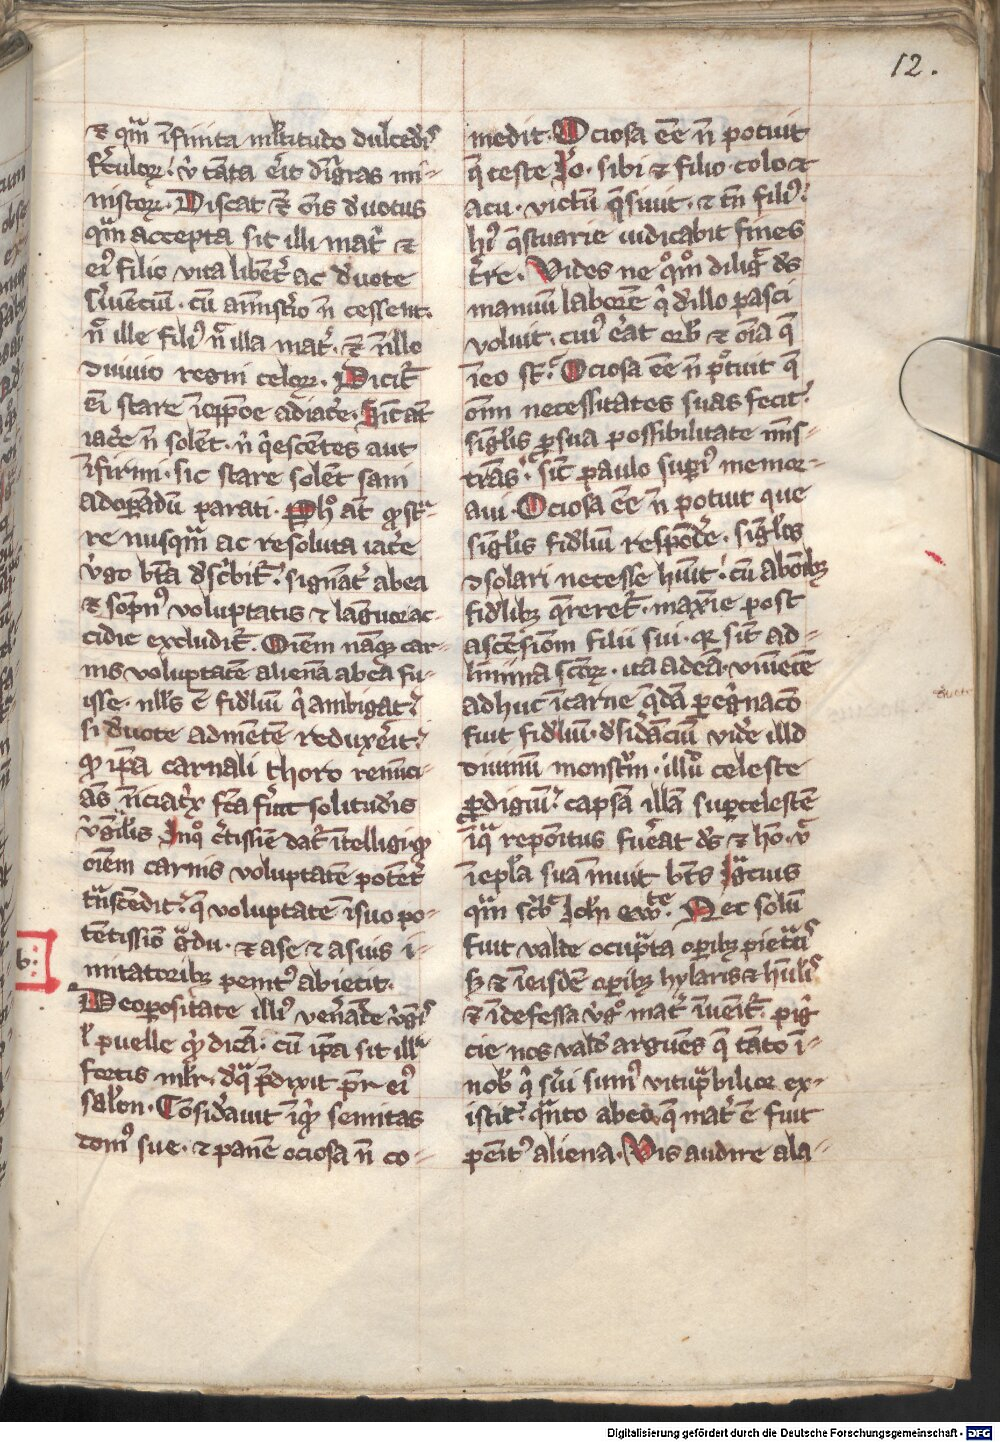 12.
⁊ qm̄ īfinita ml̄titudo dulcedīs
ſc̄ulor. v̓ tāta erit dn̄gras mi-
nistor. Discat ⁊ oīs deuotus
qm̄ accepta sit illi mat̄ et
eiꝰ filio vita libēt ac deuote
s̄uiencium. cū amīstrio n̄ cessent.
n̄ ille filiꝰ n̄ illa mat̄. ⁊ n̄llo
diuiuo regni celor. Dicit̄
adiac̄e. Sīt at̄
iac̄e n̄ solēt. n̄ q̄escentes aut
īfirmi. sic stare solēt sani
adoꝑādū parati. at̄
re nusqm̄ ac resoluta iac̄e
v̓go bt̄a dsc̄bit̄. signāt̄ abea
⁊ voluptatis ⁊ lāguor ac-
cidie excludit̄. Oīem nāqꝫ car-
nis voluptatē alienā abea fu-
isse. nll̄s ē fidl̄iū q̄ ambigat.
si deuote admētē reduxerit.
ꝙ ip̄a carnali thoro renūci-
ās fc̄a fuit solitudīs
v̓gīl̄is Inqͦ c̄tissiē dat̄ ītelligi ꝙ
oīem carnis voluptatē potēt̄
trāscēdit. q̄ voluptatē ī suo po-
tētissiō ḡdu. ⁊ a se ⁊ a suis i-
mitatoribꝫ penitꝰ abiecit.
b.
De oꝑositate illiꝰ venerāde v̓gīs
l̄ puelle q̄ dicā. cū ip̄a sit ill̄
fortis ml̄r. dq̄ p̄dixit pr̄ eiꝰ
salōn. Cōsid̓auit īq̄ semitas
domꝰ sue. ⁊ panē ociosa n̄ co-
medit. Ociosa eē n̄ potuit
q̄ teste Jo. sibi ⁊ filio colo ⁊
acu. victū q̄siuit. ⁊ tn̄ filiꝰ
hꝰ q̄stuarie iudicabit fines
t̄re. Vides ne qͦmͦ diliḡ ds̄
manuū laborē q̄ dillo pasci
voluit. cuiꝰ erat orb̄ ⁊ oīa q̄
ī eo st̄. Ociosa eē n̄ potuit q̄
oīm necessitates suas fecit.
sīgl̄is ꝓ sua possibilitate mīs-
trās. sīc paulo supīꝰ memor-
aui. Ociosa eē n̄ potuit que
sīgl̄is fidl̄iū respōd̓e. sīgl̄os
ↄsolari necesse hūit. cū ab oībꝫ
fidl̄ibꝫ q̄reret̄. maxīe post
ascēsiōem filii sui. qr sīc ad
limina sc̄or. ita ad eā. viuētē
adhuc ī carne q̄dā ꝑegnacō
fuit fidl̄iū. dsid̓āciū vid̓e illd
diuinū monstrū. illū celeste
ꝓdigiū. capsā illā supcelestē
ī q̄ reponitus fuerat ds̄ ⁊ hō. v̓
ī epl̄a sua īnuit bt̄s Ig̅cius
qm̄ sc̄b Joh̄i Nec solū
fuit valde ocupata operibꝫ pietatīs
sꝫ ⁊ ī eisdē operibꝫ hylaris ⁊ hūl̄is
⁊ īdefessa v̓go mat̄ īuēit̄. pig̅
cie nos valde arguēs q̄ tāto ī-
nob̄ q̄ s̄ui sumꝰ vitupabilior ex-
istit. qnto ab eo q̄ mat̄ ē fuit
penitꝰ aliena. Vis audire ala-
Digitalisierung gefördert durch die Deutsche Forschungsgemeinschaft - DFG